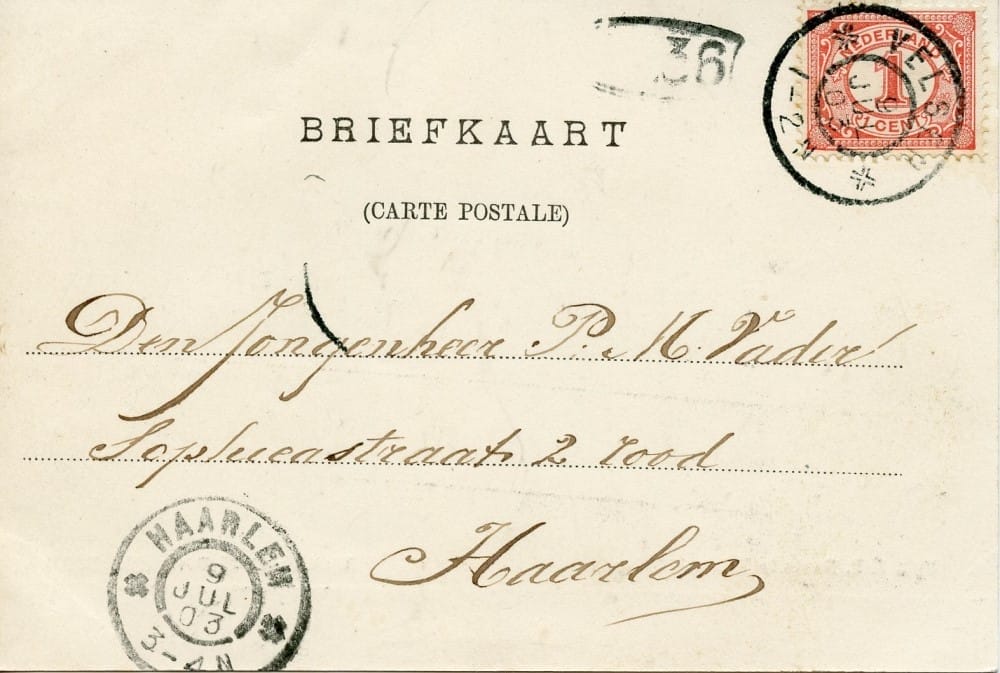 36
NEDERLAND
1
1 CENT
VELSEN
JUL 03
1-2 N
BRIEFKAART
(CARTE POSTALE)
Den Jongenheer P. M. Vader
straat 2 rood
Haarlem
HAARLEM
9
JUL
03
3-4N